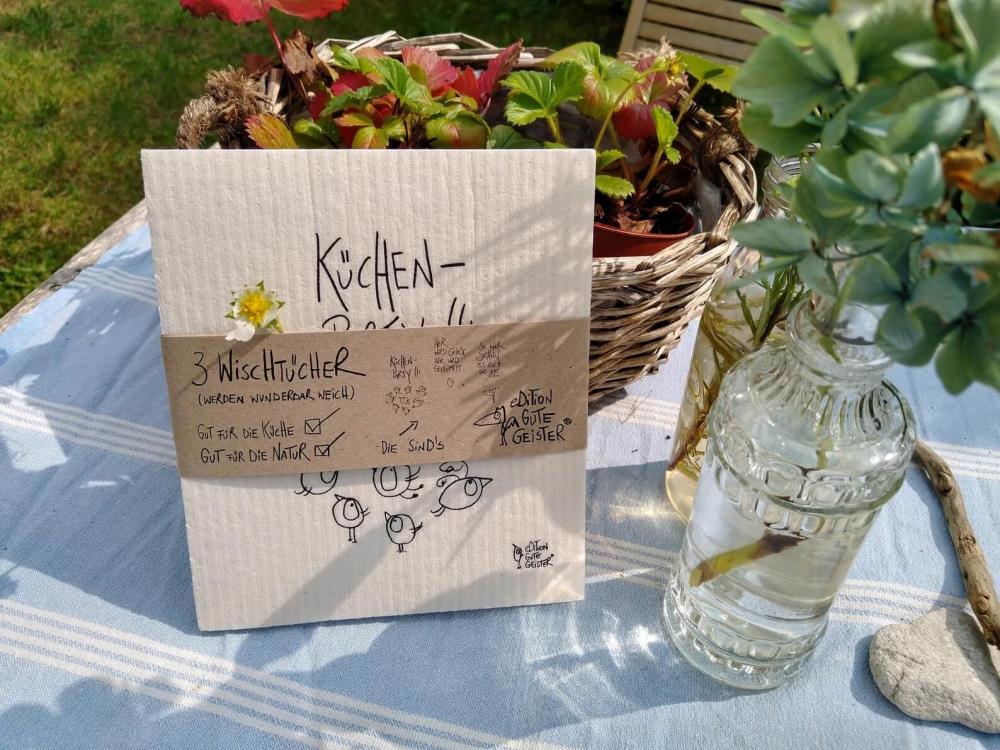 KÜCHEN-
PARTY!!
3 WISCHTÜCHER
(WERDEN WUNDERBAR WEICH)
GUT FÜR DIE KÜCHE
GUT FÜR DIE NATUR
KÜCHEN-
PARTY!!!
HIER
WIRD
DIE SIND'S
eDiTiON
GUTE
GEISTER®
eDiTiON
GUTE
GEISTER®